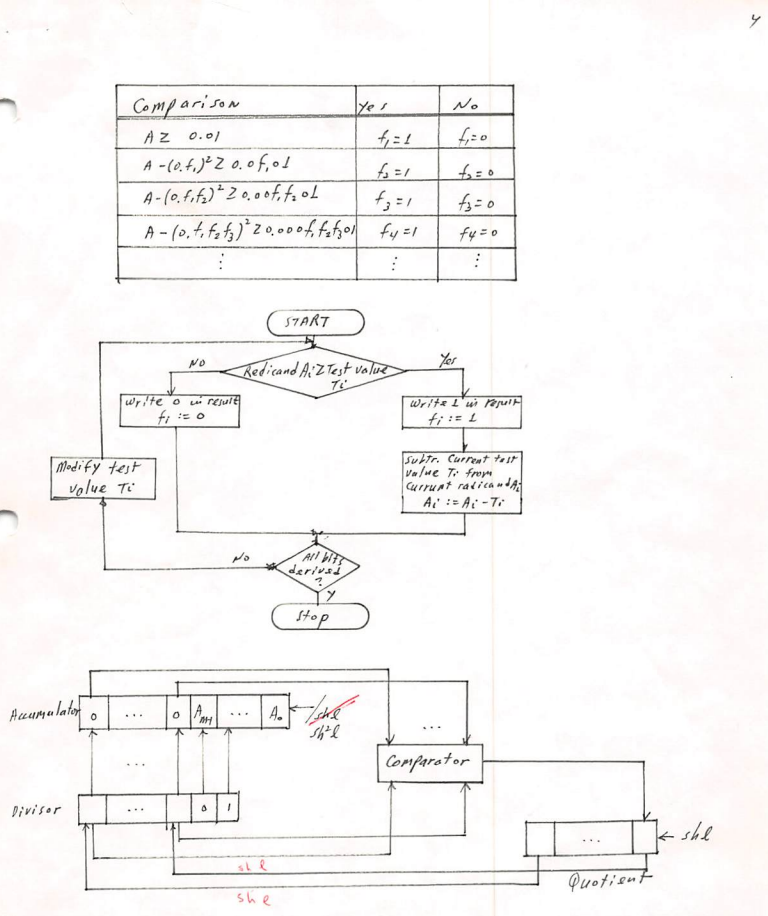 4
Comparison yes No
A ≥ 0.01 f₁=1 f₁=0
A-(0.f₁)² ≥ 0.0f₁01 f₂=1 f₂=0
A-(0.f₁f₂)² ≥ 0.00f₁f₂01 f₃=1 f₃=0
A-(0.f₁f₂f₃)² ≥ 0.000f₁f₂f₃01 f₄=1 f₄=0
⋮ ⋮ ⋮
START
NO Yes
Redicand Aᵢ ≥ Test value
Tᵢ
Write 0 in result
fᵢ := 0
Write 1 in result
fᵢ := 1
Modify test
value Tᵢ
Subtr. Current test
value Tᵢ from
Current radicand Aᵢ
Aᵢ := Aᵢ-Tᵢ
No
All bits
derived
?
Y
Stop
Accumulator 0 ... 0 Aₙ₋₁ ... A₀ shl
sh²l
...
...
Comparator
Divisor ... 0 1
... shl
shl
Quotient
shl